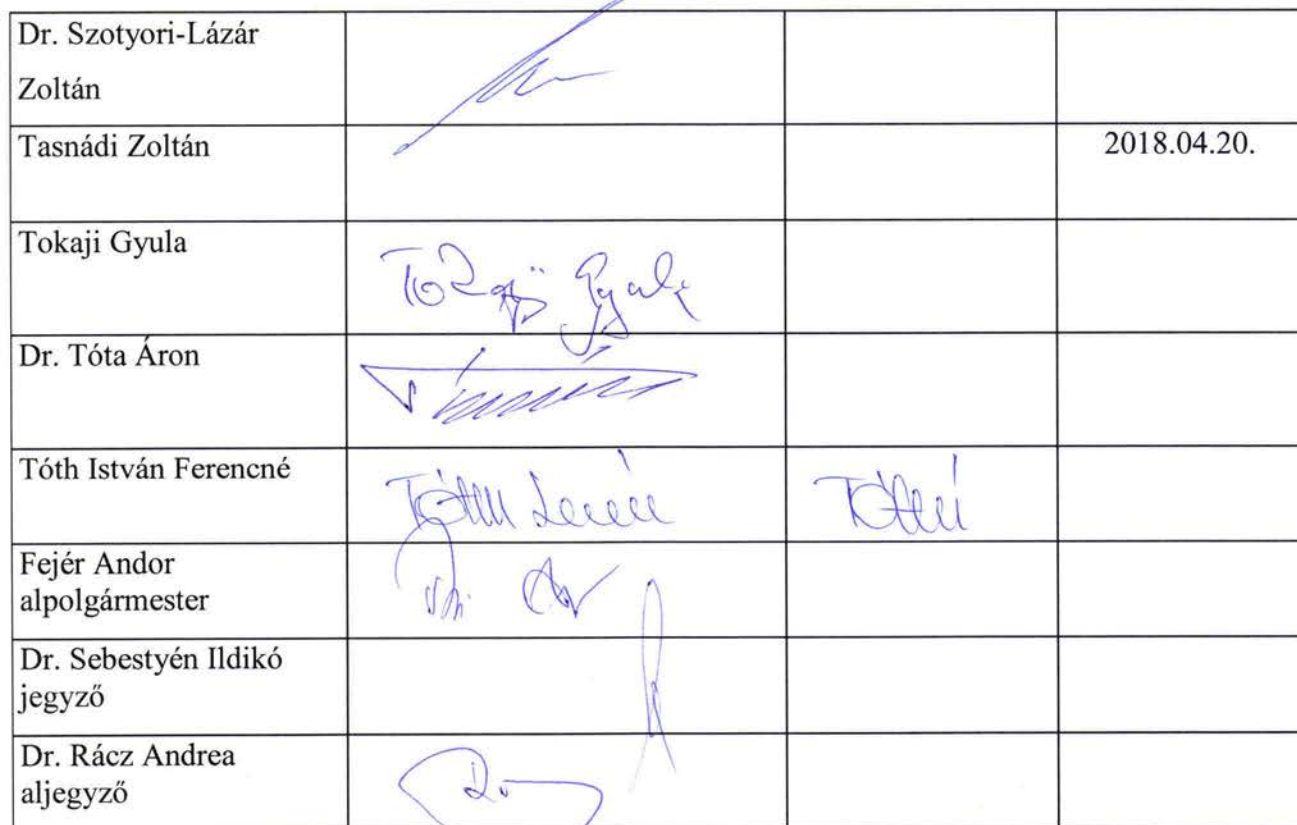 Dr. Szotyori-Lázár
Zoltán
Tasnádi Zoltán 2018.04.20.
Tokaji Gyula
Tokaji Gyula
Dr. Tóta Áron
Tóth István Ferencné
Fejér Andor
alpolgármester
Dr. Sebestyén Ildikó
jegyző
Dr. Rácz Andrea
aljegyző